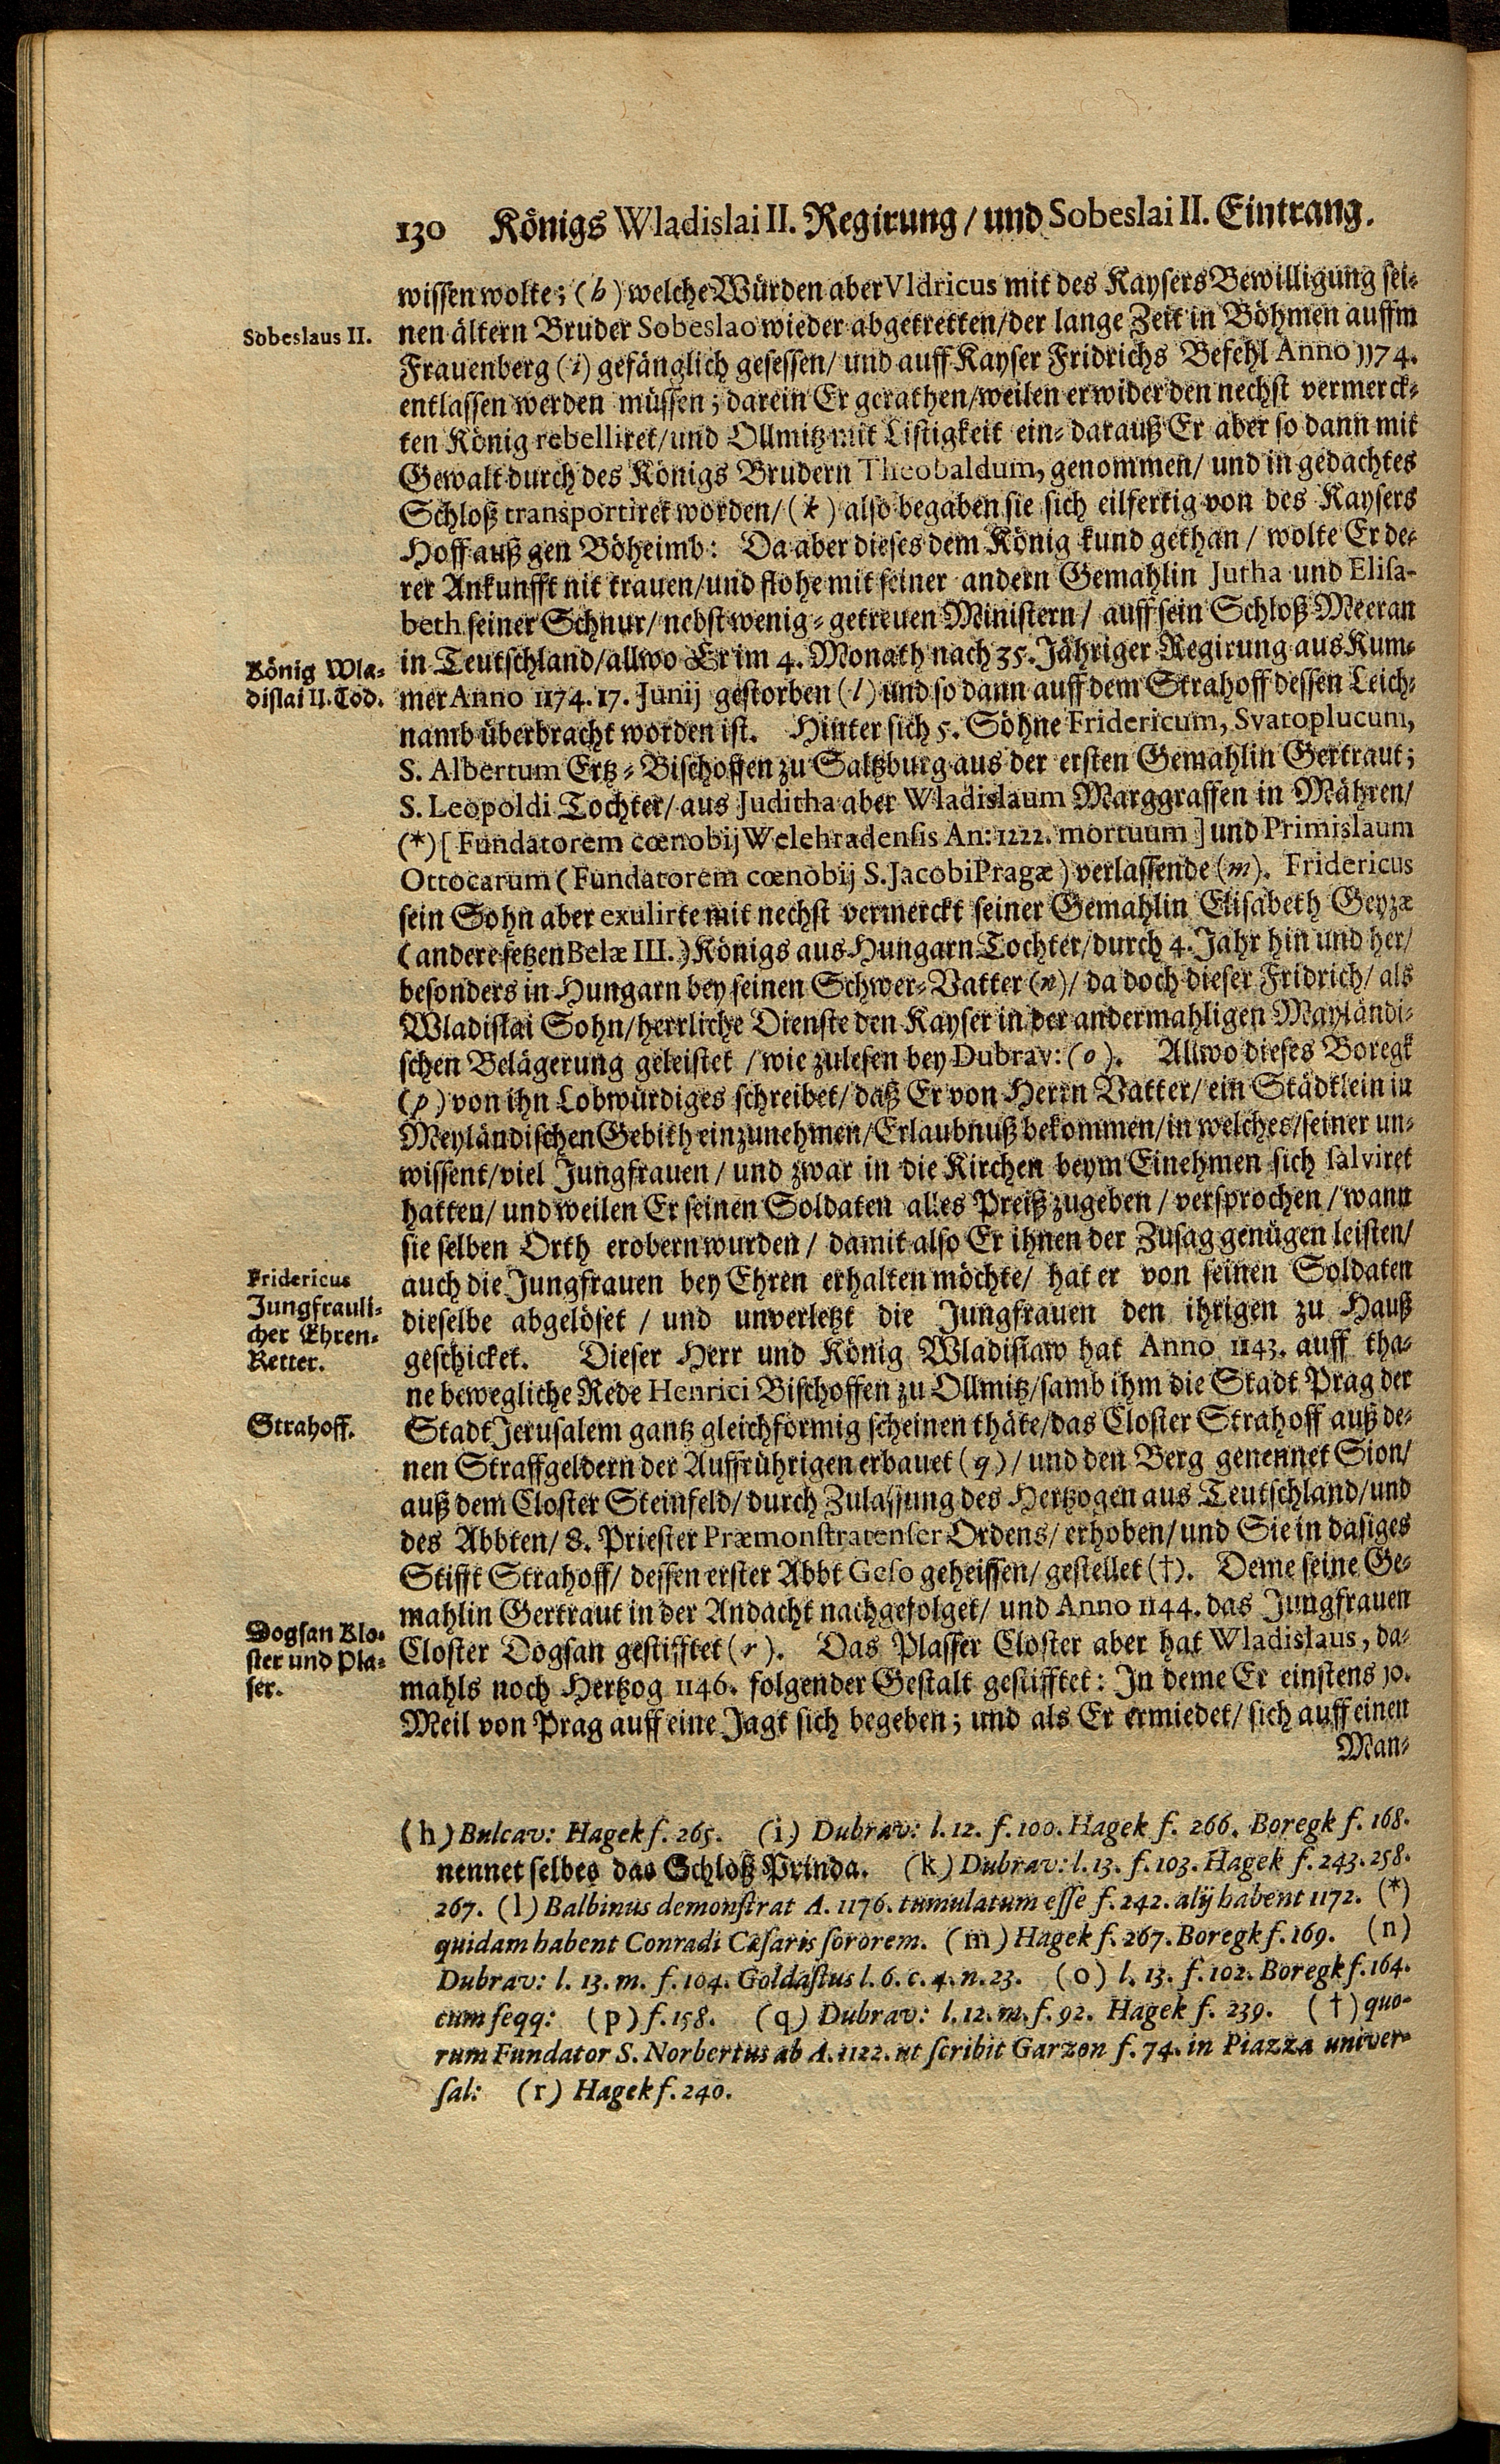 130 Königs Wladislai II. Regirung / und Sobeslai II. Eintrang.
wissen wolte; (h) welche Würden aber Vldricus mit des Kaysers Bewilligung sei-
Sobeslaus II.
nen ältern Bruder Sobeslao wieder abgetretten / der lange Zeit in Böhmen auffm
Frauenberg (i) gefänglich gesessen / und auff Kayser Fridrichs Befehl Anno 1174.
entlassen werden müssen; darein Er gerathen / weilen er wider den nechst vermerck-
ten König rebelliret / und Ollmitz mit Listigkeit ein- darauß Er aber so dann mit
Gewalt durch des Königs Brudern Theobaldum, genommen / und in gedachtes
Schloß transportiret worden / (k) also begaben sie sich eilfertig von des Kaysers
Hoff auß gen Böheimb: Da aber dieses dem König kund gethan / wolte Er de-
rer Ankunfft nit trauen / und flohe mit seiner andern Gemahlin Jutha und Elisa-
beth seiner Schnur / nebst wenig-getreuen Ministern / auff sein Schloß Meeran
König Wla-
dislai II. Tod.
in Teutschland / allwo Er im 4. Monath nach 35. Jähriger Regirung aus Kum-
mer Anno 1174. 17. Junij gestorben (l) und so dann auff dem Strahoff dessen Leich-
namb überbracht worden ist. Hinter sich 5. Söhne Fridericum, Svatoplucum,
S. Albertum Ertz-Bischoffen zu Saltzburg aus der ersten Gemahlin Gertraut;
S. Leopoldi Tochter / aus Juditha aber Wladislaum Marggraffen in Mähren /
(*) [Fundatorem cœnobij Welehradensis An: 1222. mortuum] und Primislaum
Ottocarum (Fundatorem cœnobij S. Jacobi Pragæ) verlassende (m). Fridericus
sein Sohn aber exulirte mit nechst vermerckt seiner Gemahlin Elisabeth Geyzæ
(andere setzen Belæ III.) Königs aus Hungarn Tochter / durch 4. Jahr hin und her /
besonders in Hungarn bey seinen Schwer-Vatter (n) / da doch dieser Fridrich / als
Wladislai Sohn / herrliche Dienste den Kayser in der andermahligen Mayländi-
schen Belägerung geleistet / wie zulesen bey Dubrav: (o). Allwo dieses Boregk
(p) von ihn Lobwürdiges schreibet / daß Er von Herrn Vatter / ein Städtlein in
Meyländischen Gebith einzunehmen / Erlaubnuß bekommen / in welches / seiner un-
wissent / viel Jungfrauen / und zwar in die Kirchen beym Einehmen sich salviret
hatten / und weilen Er seinen Soldaten alles Preiß zugeben / versprochen / wann
sie selben Orth erobern wurden / damit also Er ihnen der Zusag genügen leisten /
Fridericus
Jungfrauli-
cher Ehren-
Retter.
auch die Jungfrauen bey Ehren erhalten möchte / hat er von seinen Soldaten
dieselbe abgelöset / und unverletzt die Jungfrauen den ihrigen zu Hauß
geschicket. Dieser Herr und König Wladislaw hat Anno 1143. auff tha-
ne bewegliche Rede Henrici Bischoffen zu Ollmitz / samb ihm die Stadt Prag der
Strahoff.
Stadt Jerusalem gantz gleichförmig scheinen thäte / das Closter Strahoff auß de-
nen Straffgeldern der Auffrührigen erbauet (q) / und den Berg genennet Sion /
auß dem Closter Steinfeld / durch Zulassung des Hertzogen aus Teutschland / und
des Abbten / 8. Priester Præmonstratenser Ordens / erhoben / und Sie in dasiges
Stifft Strahoff / dessen erster Abbt Geso geheissen / gestellet (†). Deme seine Ge-
mahlin Gertraut in der Andacht nachgefolget / und Anno 1144. das Jungfrauen
Dogsan Klo-
ster und Pla-
ser.
Closter Dogsan gestifftet (r). Das Plasser Closter aber hat Wladislaus, da-
mahls noch Hertzog 1146. folgender Gestalt gestifftet: In deme Er einstens 10.
Meil von Prag auff eine Jagt sich begeben; und als Er ermiedet / sich auff einen
Man-
(h) Bulcav: Hagek f. 265. (i) Dubrav: l. 12. f. 100. Hagek f. 266. Boregk f. 168.
nennet selbes das Schloß Prinda. (k) Dubrav: l. 13. f. 103. Hagek f. 243. 258.
267. (l) Balbinus demonstrat A. 1176. tumulatum esse f. 242. alij habent 1172. (*)
quidam habent Conradi Cæsaris sororem. (m) Hagek f. 267. Boregk f. 169. (n)
Dubrav: l. 13. m. f. 104. Goldastus l. 6. c. 4. n. 23. (o) l. 13. f. 102. Boregk f. 164.
cum seqq: (p) f. 158. (q) Dubrav: l. 12. m. f. 92. Hagek f. 239. (†) quo-
rum Fundator S. Norbertus ab A. 1122. ut scribit Garzon f. 74. in Piazza univer-
sal: (r) Hagek f. 240.